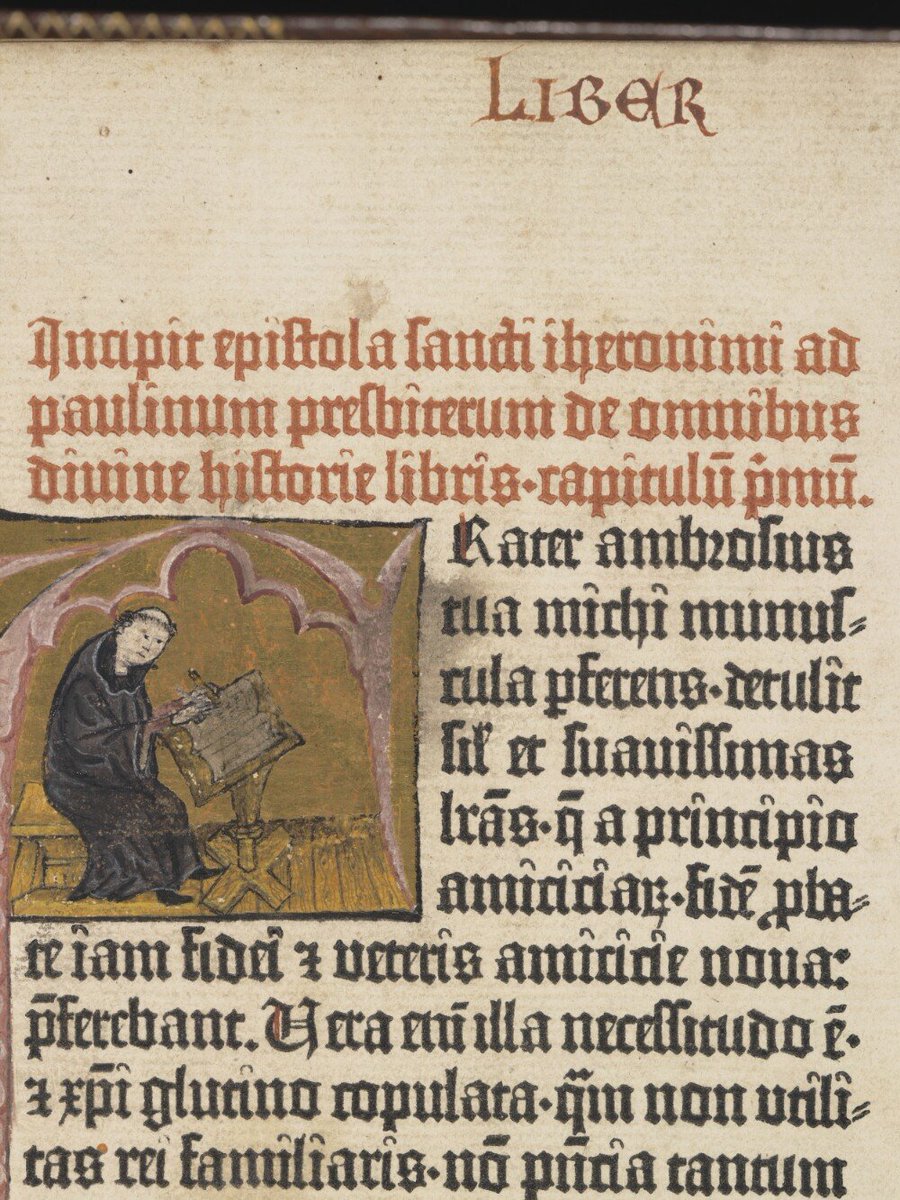 LIBER
Incipit epistola sancti iheronimi ad
paulinum presbiterum de omnibus
divine historie libris·capitulū p̄mū.
Rater ambrosius
tua michi munus⸗
cula ꝑferens·detulit
sil̕ et suavissimas
lrās·q̄ a principio
amiciciaꝝ·fidē ꝓba⸗
te iam fidei ⁊ veteris amicicie nova:
p̄ferebant. Vera em̄ illa necessitudo ē·
⁊ xp̄i glutino copulata·qm̄ non utili⸗
tas rei familiaris·nō pn̄tia tantum